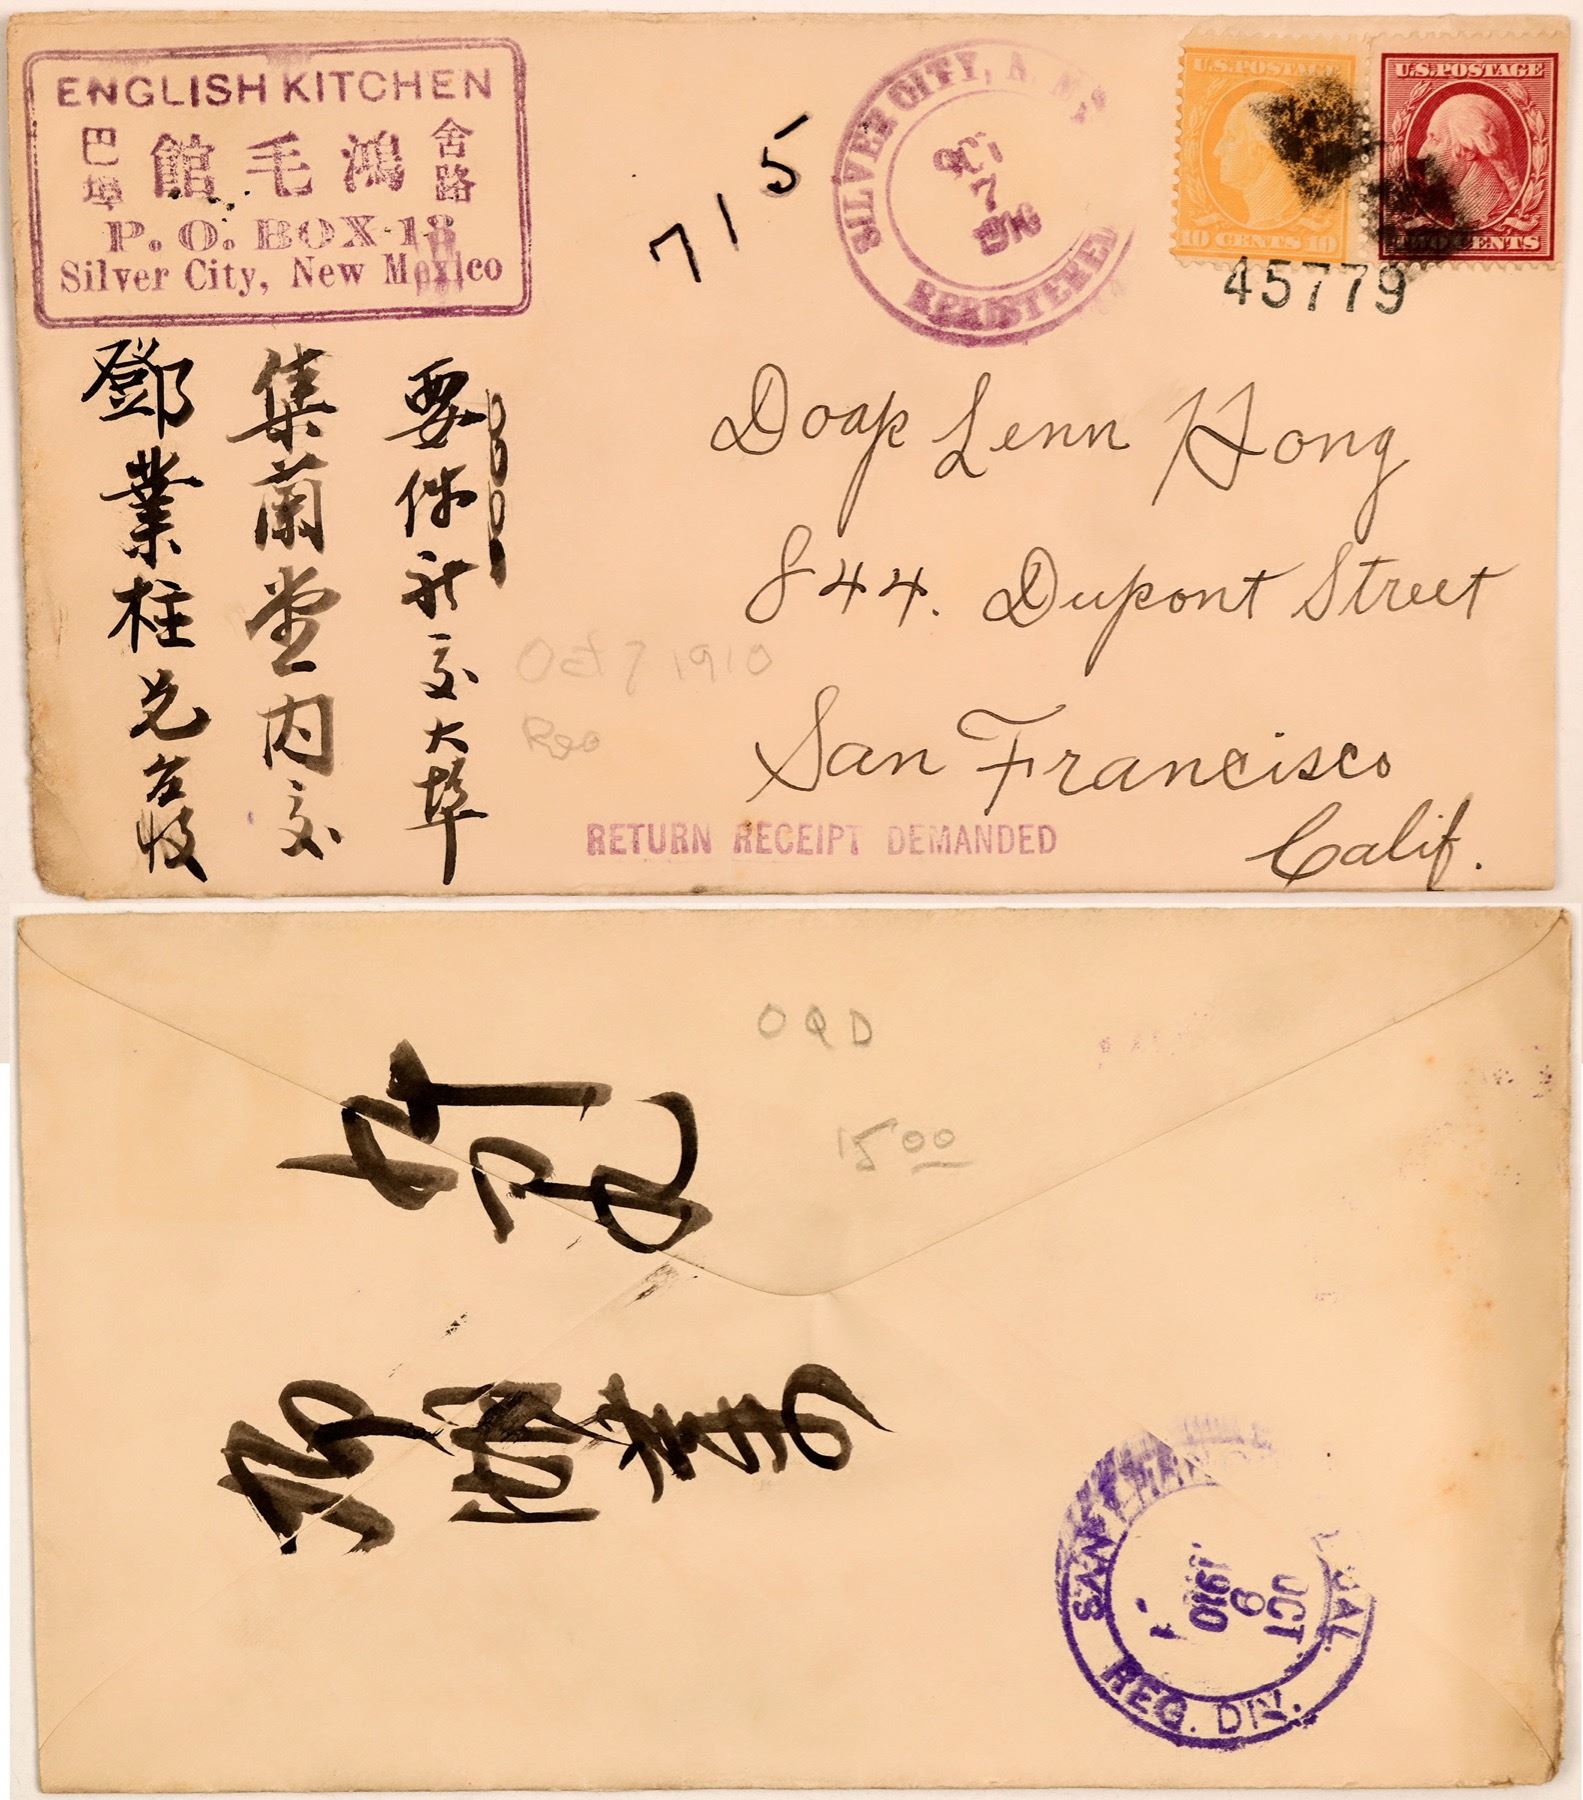 ENGLISH KITCHEN
舍路
鴻毛館
巴埠
P. O. BOX 18
Silver City, New Mexico
715
SILVER CITY, N. M.
OCT
7
1910
REGISTERED
U.S. POSTAGE
10 CENTS 10
U.S. POSTAGE
TWO CENTS
45779
Doap Lenn Hong
844. Dupont Street
San Francisco
Calif.
要件祈交大埠
集蘭堂內交
鄧業柱兄台收
Oct 7 1910
Reg
RETURN RECEIPT DEMANDED
OQD
15 00
SAN CAL.
OCT
9
1910
REG. DIV.